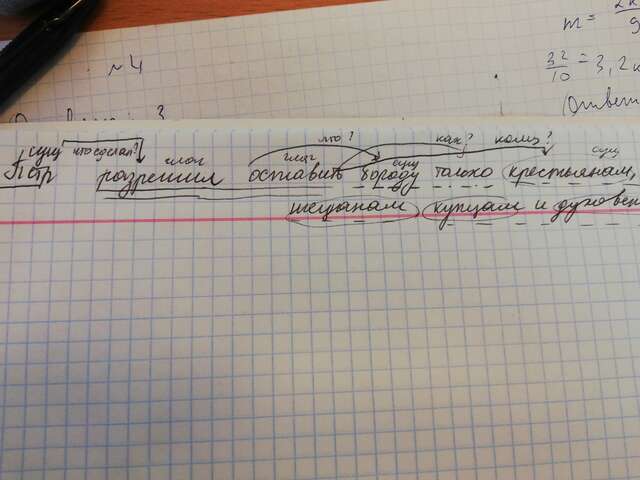 №4
m = 2к
9
32
10 = 3,2 к
Ответ
сущ что сделал? глаг глаг что? сущ как? кому? сущ
Пётр разрешил оставить бороду только крестьянам,
мещанам купцам и духовен